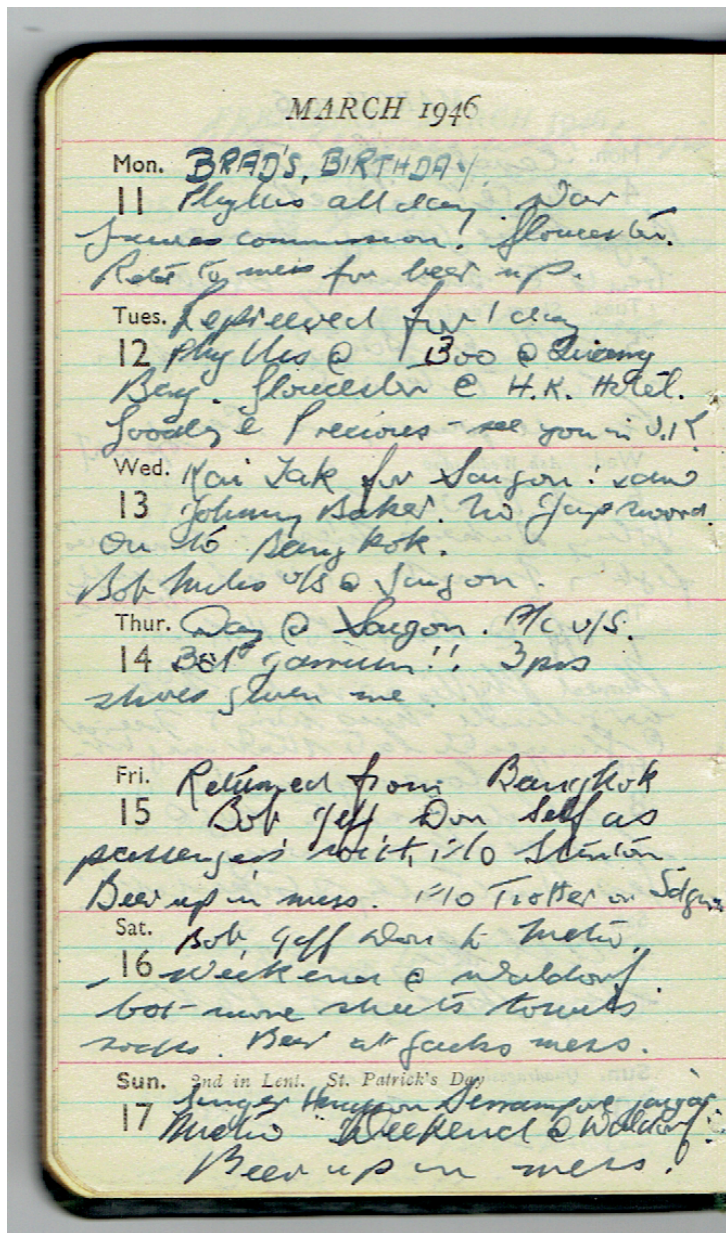 MARCH 1946
Mon. BRAD'S, BIRTHDAY
11 Phyllis all day War
commission! Gloucester.
to mess for beer up.
Tues. Reprieved for 1 day
12 Phyllis @ 1300 @
Bay. Gloucester @ H.K. Hotel.
Goodbye Precious - see you in U.K
Wed. Kai Tak for Saigon!
13 Johnny Baker. No Jap
on to Bangkok.
Bob u/s @ Saigon.
Thur. Day @ Saigon. A/C U/S.
14 !! 3 prs
shoes given me
Fri. Returned from Bangkok
15 Bob Jeff Don Self as
passengers with F/O Stinton
Beer up in mess. F/O Trotter on
Sat. Bob Jeff Don to Metro.
16 Weekend @ Waldorf.
got more sheets towels
socks. Beer at Jacks mess.
Sun. 2nd in Lent. St. Patrick's Day
Serrampore
17 Metro Weekend @ Waldorf.
Beer up in mess.